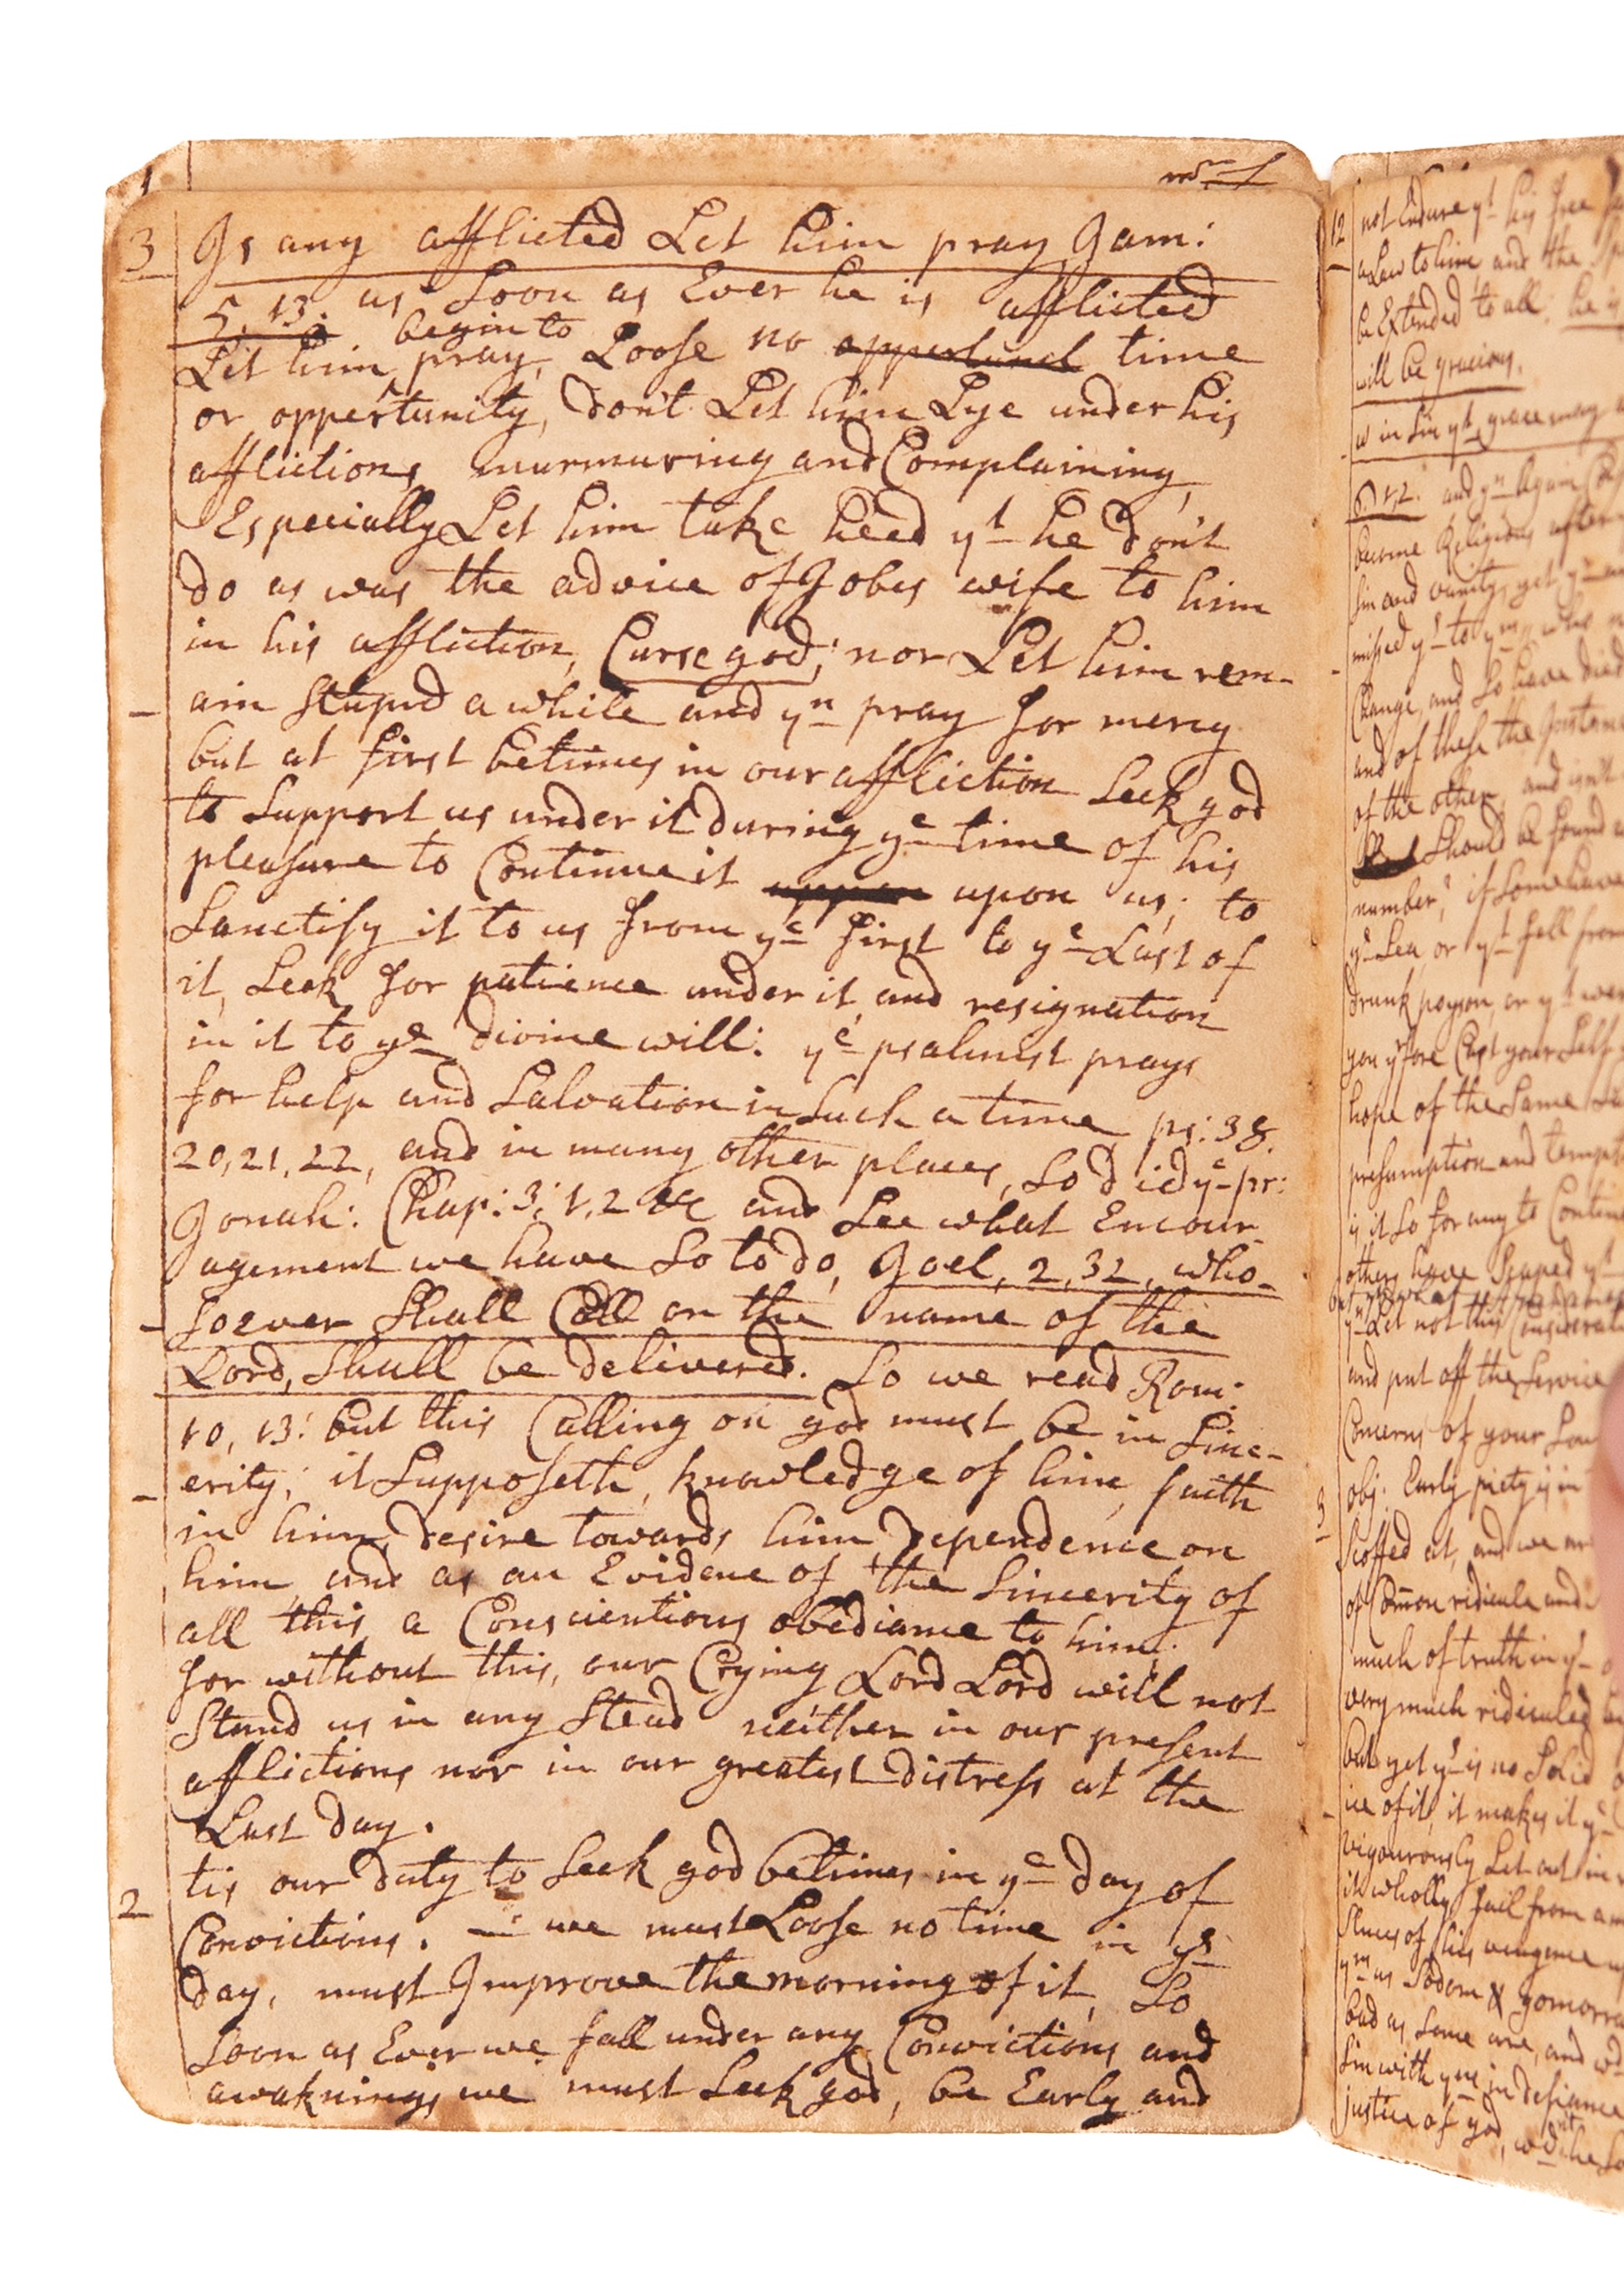 3 Is any afflicted Let him pray Jam:
5. 13. as Soon as Ever he is afflicted
begin to
Let him pray, Loose no time
or oppertunity, don't Let him Lye under his
afflictions murmuring and Complaining,
Especially Let him take heed yt he don't
do as was the advice of Jobes wife to him
in his affliction, Curse god; nor Let him rem-
ain Stupid a while and yn pray for mercy
but at first betimes in our affliction Seek god
to Support us under it during ye time of his
pleasure to Continue it upon us; to
Sanctify it to us from ye first to ye Last of
it, Seek for patience under it, and resignation
in it to ye divine will: ye psalmist prays
for help and Salvation in Such a time ps: 38.
20, 21, 22, and in many other places, So did ye pr:
Jonah: Chap: 3: 1, 2 &c and See what Encour-
agement we have So to do, Joel, 2, 32, who-
soever Shall Call on the name of the
Lord, Shall be delivered. So we read Rom:
10, 13: but this Calling on god must be in Sinc-
erity; it Supposeth, knowledge of him, faith
in him, desire towards him, dependence on
him, and as an Evidence of the Sincerity of
all this, a Conscientious obediance to him:
for without this, our Crying Lord Lord will not
Stand us in any Stead neither in our present
afflictions nor in our greatest distress at the
Last day.
2 tis our duty to Seek god betimes in ye day of
Convictions. we must Loose no time in ys
day, must Improve the morning of it, So
Soon as Ever we fall under any Convictions and
awaknings we must Seek god, be Early and
12 not Endure yt his free
a Law to him, and the
be Extended to all; he
will be gracious.
in Sin yt grace may
6.12. and yn again
become Religious after
Sin and vanity, yet
Change, and So have died
and of these the
of the other, and
Should be found
number? if Some have
ye Sea, or yt fell from
drunk poyson, or yt
you yrfore Cast your Self
hope of the Same
presumption and
is it So for any to
others have Scaped
yn Let not this
and put off the Service
Concerns of your
3 obj: Early piety is in
Scoffed at, and we
of Comon ridicule and
much of truth in
very much ridiculed
but yet is no Solid
ice of it, it makes it
vigourously Set out in
it wholly, fail from
ym as Sodom & gomorra
bad as Some are, and
Sin with ym in defiance
justice of god,